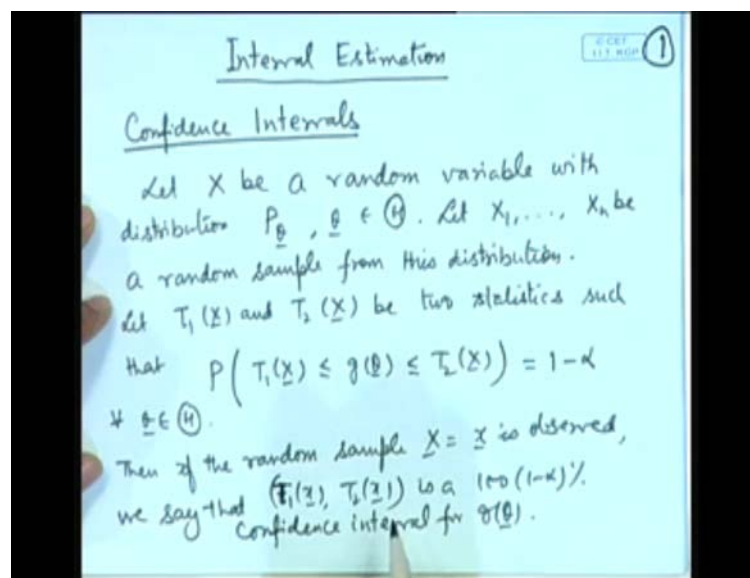 Interval Estimation
C-CET
I.I.T. KGP
1
Confidence Intervals
Let X be a random variable with
distribution P_θ, θ ∈ Ⓗ. Let X₁, ..., Xₙ be
a random sample from this distribution.
Let T₁(X) and T₂(X) be two statistics such
that P( T₁(X) ≤ g(θ) ≤ T₂(X) ) = 1-α
∀ θ ∈ Ⓗ.
Then if the random sample X = x is observed,
we say that (T₁(x), T₂(x)) is a 100(1-α)%
confidence interval for g(θ).